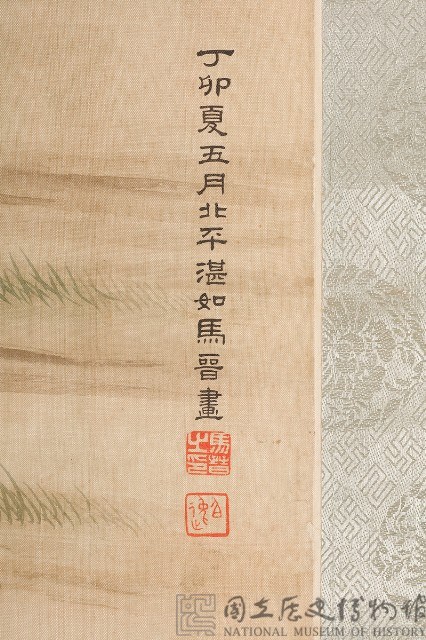 丁卯夏五月北平湛如馬晉畫
馬晉之印
國立歷史博物館
NATIONAL MUSEUM OF HISTORY